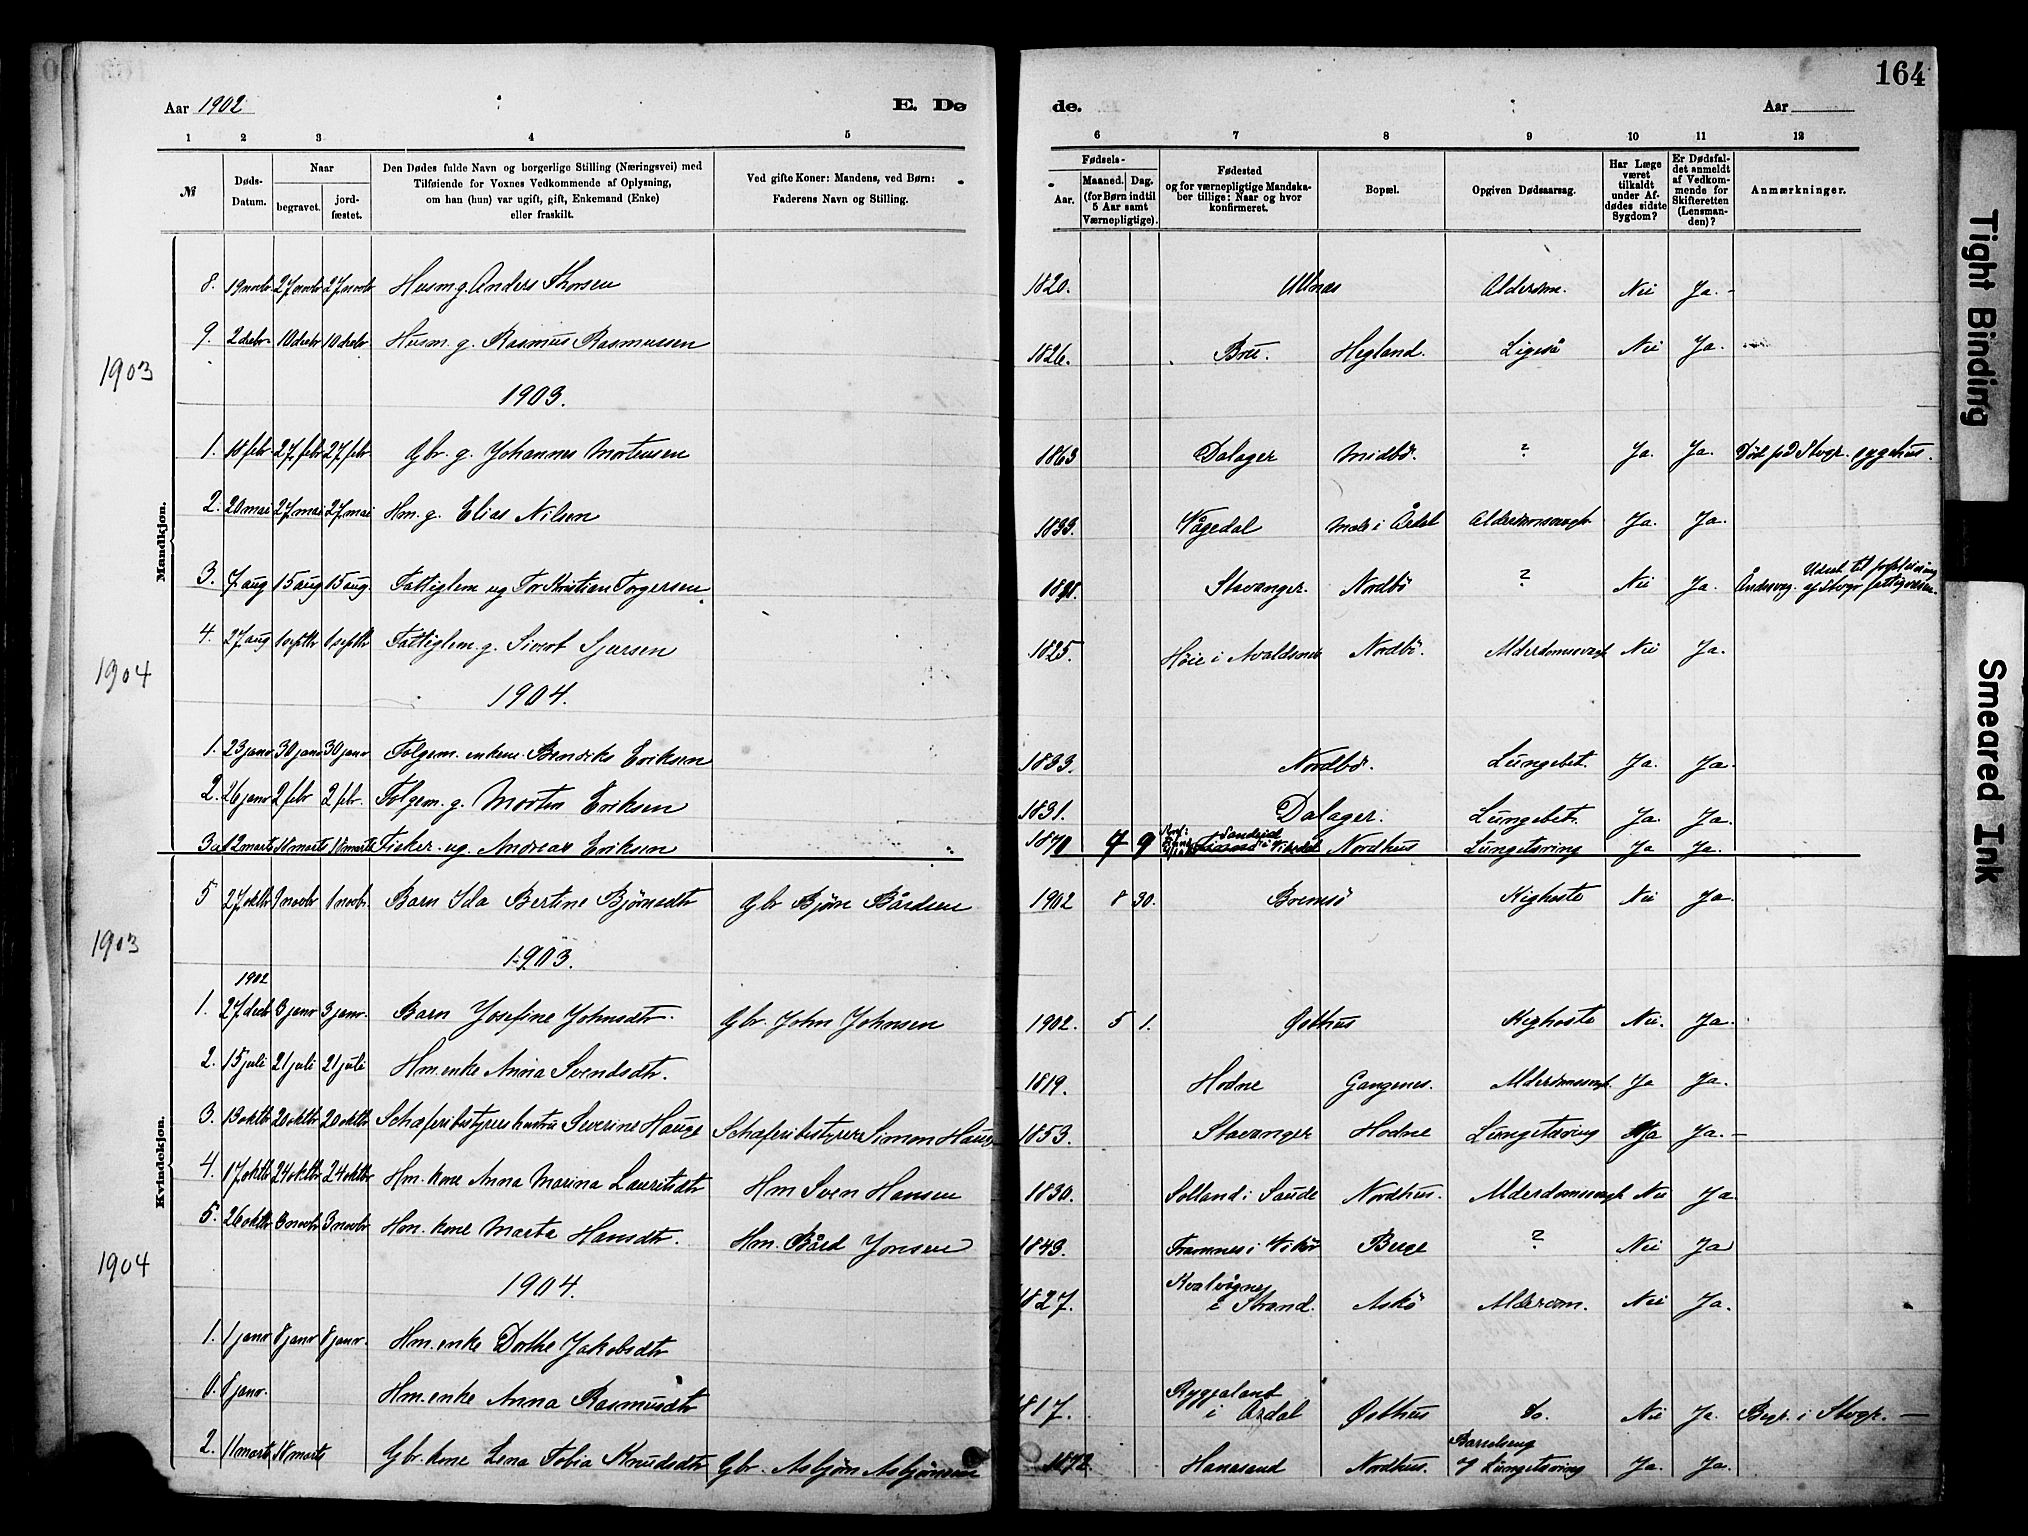 164
Aar 1902
E. Dø
de.
Aar
1 2 3 4 5
6 7 8 9 10 11 12
№
Døds-Datum.
Naar
begravet.
jord-fæstet.
Den Dødes fulde Navn og borgerlige Stilling (Næringsvei) med
Tilføiende for Voxnes Vedkommende af Oplysning,
om han (hun) var ugift, gift, Enkemand (Enke)
eller fraskilt.
Ved gifte Koner: Mandens, ved Børn:
Faderens Navn og Stilling.
Fødsels-
Aar.
Maaned. Dag.
(for Børn indtil
5 Aar samt
Værnepligtige).
Fødested
og for værnepligtige Mandska-
ber tillige: Naar og hvor
konfirmeret.
Bopæl.
Opgiven Dødsaarsag.
Har Læge
været
tilkaldt
under Af-
dødes sidste
Sygdom?
Er Dødsfal-
det anmeldt
af Vedkom-
mende for
Skifteretten
(Lensman-
den)?
Anmærkninger.
Mandkjøn.
8. 19 novbr 27 novbr 27 novbr Husm g. Anders Thorsen 1820. Utsnes Alderdm. Nei Ja. -
9. 2 decbr 10 decbr 10 decbr Husm. g. Rasmus Rasmussen 1826. Bru. Hegland. Ligeså Nei Ja.
1903
1903.
1. 18 febr 27 febr 27 febr Gbr. g. Johannes Mortensen 1863 Dalager Midbø. ? Ja. Ja. Død på Stvgr. sygehus.
2. 20 mai 27 mai 27 mai Hm. g. Elias Nilsen 1833. Vågedal Mæle i Årdal Alderdomssvagh. Ja. Ja.
3. 7 aug 15 aug 15 aug. Fattiglem ug Tor Kristian Torgersen. Stavanger. Nordbø ? Nei Ja. Åndssvag. Udsat til forpleining af Stvgr fattigvæsen.
4. 27 aug 1 septbr 1 septbr Fattiglem. g. Sivert Sjursen 1825. Høie i Avaldsnes Nordbø. Alderdomssvagh Nei Ja.
1904
1904.
1. 23 janr 30 janr 30 janr Folgem. enkem. Bendiks Eriksen 1833. Nordbø. Lungebet. Ja. Ja.
2. 26 janr 2 febr 2 febr. Folgem. g. Morten Eriksen 1831. Dalager. Lungebet. Ja. Ja.
3. 12 marts 18 marts 18 marts Fisker. ug. Andreas Eriksen 1870 7 9 Sandeid i Vikedal Nordhus Lungetæring Ja Ja.
Kvindekjøn.
5 27 oktbr 9 novbr 1 novbr. Barn Ida Bertine Bjørnsdtr Gbr Bjørn Bårdsen 1902 8 30. Bremsø Kighoste Nei Ja.
1903
1903.
1902
1. 27 decbr 3 janr 3 janr. Barn Josefine Johnsdtr. Gbr. John Johnsen 1902. 5 1. Østhus Kighoste Nei. Ja.
2. 15 juli 21 juli 21 juli Hm. enke Anna Svendsdtr. 1819. Hodne Gangenes. Alderdomssvagh. Ja Ja.
3. 13 oktbr 20 oktbr 20 oktbr Schæferibestyrers hustru Severine Hauge Schæferibestyrer Simon Hauge 1853. Stavanger Hodne Lungetæring Ja Ja. -
4. 17 oktbr 24 oktbr 24 oktbr Hm. kone Anna Marina Lauritsdtr Hm Sven Hansen 1830. Solland i Saude Nordhus. Alderdomssvagh Nei Ja
5. 26 oktbr 3 novbr 3 novbr Hm. kone Marta Hansdtr. Hm. Bård Jonsen 1843. Framnes i Vikør Berge ? Nei Ja
1904
1904.
1. 1 janr 8 janr 8 janr. Hm. enke Dorthe Jakobsdtr 1827. Kvalvågnes i Strand. Askø Alderdm. Nei Ja.
0. 8 janr. Hm. enke Anna Rasmusdtr 1817. i Årdal Østhus do. Nei Ja. Begr. i Stvgr. —
2. 11 marts 18 marts Gbr. kone Lena Tobia Knudsdtr Gbr. Asbjørn Asbjørnsen 1872. Hanasand Nordhus. Barselseng & Lungetæring Ja. Ja.
Tight Binding
Smeared Ink